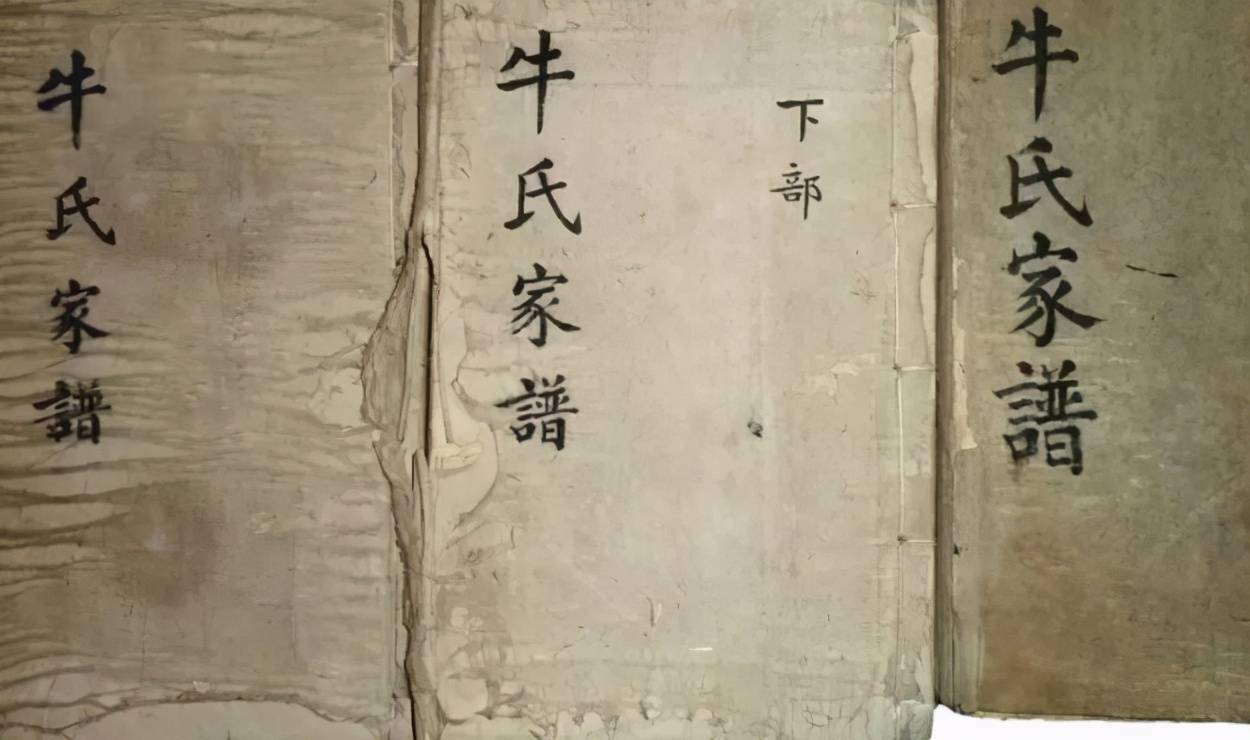 牛氏家譜
牛氏家譜
下部
牛氏家譜